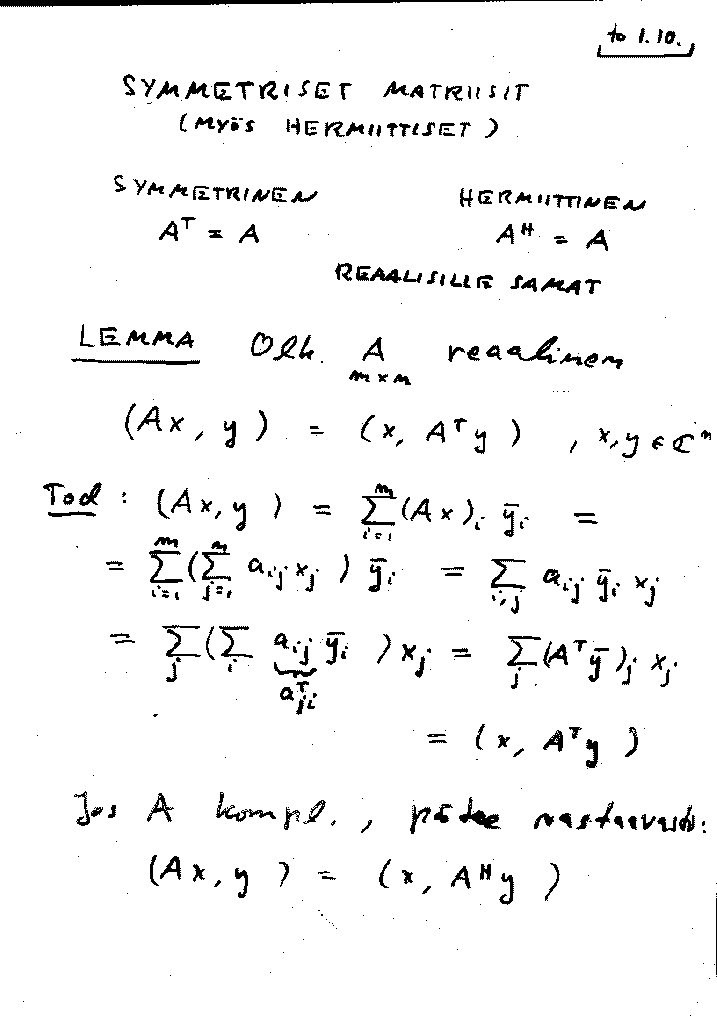 to 1.10.
SYMMETRISET MATRIISIT
(MYÖS HERMIITTISET)
SYMMETRINEN HERMIITTINEN
Aᵀ = A Aᴴ = A
REAALISILLE SAMAT
LEMMA Olk. A reaalinen
n×n
(Ax, y) = (x, Aᵀy) , x,y ∈ ℂⁿ
Tod : (Ax, y) = ∑ᵢ₌₁ⁿ (Ax)ᵢ ȳᵢ =
= ∑ᵢ₌₁ⁿ (∑ⱼ₌₁ⁿ aᵢⱼ xⱼ) ȳᵢ = ∑ᵢ,ⱼ aᵢⱼ ȳᵢ xⱼ
= ∑ⱼ (∑ᵢ aᵢⱼ ȳᵢ) xⱼ = ∑ⱼ (Aᵀȳ)ⱼ xⱼ
aᵀⱼᵢ
= (x, Aᵀy)
Jos A kompl., pätee vastaavasti:
(Ax, y) = (x, Aᴴy)